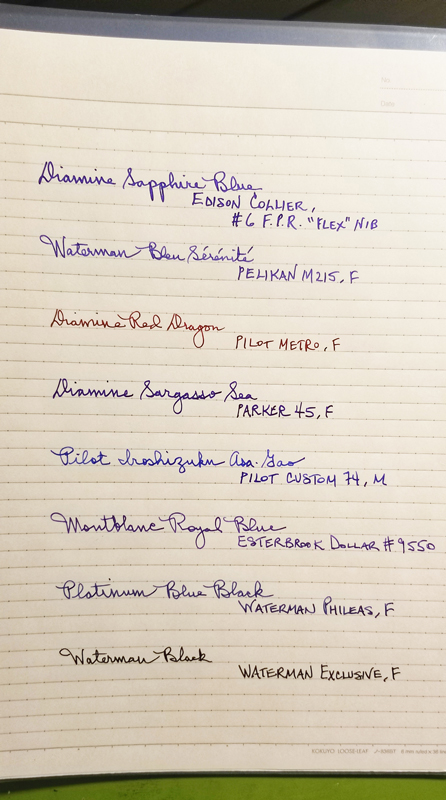 No.
Date
Diamine Sapphire Blue
EDISON COLLIER,
#6 F.P.R. "FLEX" NIB
Waterman Bleu Sérénité
PELIKAN M215, F
Diamine Red Dragon
PILOT METRO, F
Diamine Sargasso Sea
PARKER 45, F
Pilot Iroshizuku Asa-Gao
PILOT CUSTOM 74, M
Montblanc Royal Blue
ESTERBROOK DOLLAR #9550
Platinum Blue Black
WATERMAN PHILEAS, F
Waterman Black
WATERMAN EXCLUSIVE, F
KOKUYO LOOSE-LEAF